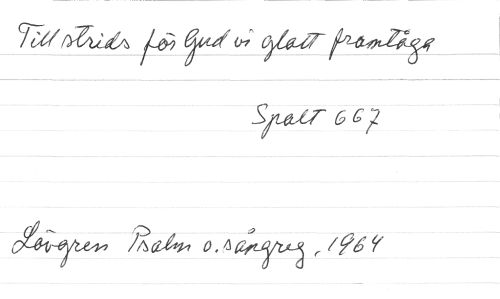 Till strids för Gud vi glatt framtåga
Spalt 667
Lövgren Psalm o. sångreg, 1964